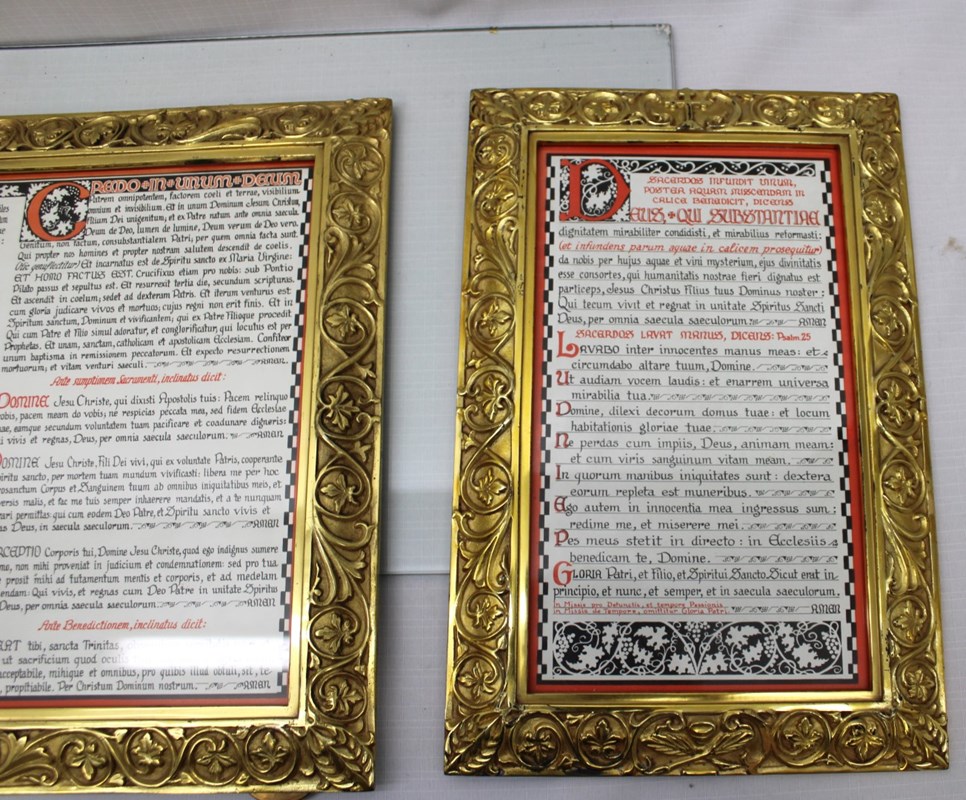 CREDO IN UNUM DEUM
Patrem omnipotentem, factorem coeli et terrae, visibilium
omnium et invisibilium. Et in unum Dominum Jesum Christum,
Filium Dei unigenitum, et ex Patre natum ante omnia saecula.
Deum de Deo, lumen de lumine, Deum verum de Deo vero.
Genitum, non factum, consubstantialem Patri, per quem omnia facta sunt.
Qui propter nos homines et propter nostram salutem descendit de coelis,
(hic genuflectitur) Et incarnatus est de Spiritu sancto ex Maria Virgine:
ET HOMO FACTUS EST. Crucifixus etiam pro nobis: sub Pontio
Pilato passus et sepultus est. Et resurrexit tertia die, secundum scripturas.
Et ascendit in coelum; sedet ad dexteram Patris. Et iterum venturus est
cum gloria judicare vivos et mortuos; cujus regni non erit finis. Et in
Spiritum sanctum, Dominum et vivificantem, qui ex Patre Filioque procedit
Qui cum Patre et Filio simul adoratur, et conglorificatur, qui locutus est per
Prophetas. Et unam, sanctam, catholicam et apostolicam Ecclesiam. Confiteor
unum baptisma in remissionem peccatorum. Et expecto resurrectionem
mortuorum, et vitam venturi saeculi. AMEN.
Ante sumptionem Sacramenti, inclinatus dicit:
DOMINE Jesu Christe, qui dixisti Apostolis tuis: Pacem relinquo
vobis, pacem meam do vobis; ne respicias peccata mea, sed fidem Ecclesiae
tuae, eamque secundum voluntatem tuam pacificare et coadunare digneris:
qui vivis et regnas, Deus, per omnia saecula saeculorum. AMEN
DOMINE Jesu Christe, Fili Dei vivi, qui ex voluntate Patris, cooperante
Spiritu sancto, per mortem tuam mundum vivificasti: libera me per hoc
sacrosanctum Corpus et Sanguinem tuum ab omnibus iniquitatibus meis, et
universis malis, et fac me tuis semper inhaerere mandatis, et a te nunquam
separari permittas qui cum eodem Deo Patre, et Spiritu sancto vivis et
regnas Deus, in saecula saeculorum. AMEN
PERCEPTIO Corporis tui, Domine Jesu Christe, quod ego indignus sumere
praesumo, non mihi proveniat in judicium et condemnationem: sed pro tua
pietate prosit mihi ad tutamentum mentis et corporis, et ad medelam
percipiendam: Qui vivis, et regnas cum Deo Patre in unitate Spiritus
Deus, per omnia saecula saeculorum. AMEN
Ante Benedictionem, inclinatus dicit:
PLACEAT tibi, sancta Trinitas,
sit sacrificium quod ocul
acceptabile, mihique et omnibus, pro quibus illud obtuli, sit, te-
propitiabile. Per Christum Dominum nostrum. AMEN
SACERDOS INFUNDIT VINUM,
POSTEA AQUAM MISCENDAM IN
CALICE BENEDICIT, DICENS
DEUS QUI SUBSTANTIAE
dignitatem mirabiliter condidisti, et mirabilius reformasti:
(et infundens parum aquae in calicem prosequitur)
da nobis per hujus aquae et vini mysterium, ejus divinitatis
esse consortes, qui humanitatis nostrae fieri dignatus est
particeps, Jesus Christus Filius tuus Dominus noster:
Qui tecum vivit et regnat in unitate Spiritus Sancti
Deus, per omnia saecula saeculorum. AMEN
SACERDOS LAVAT MANUS, DICENS: Psalm. 25
LAVABO inter innocentes manus meas: et
circumdabo altare tuum, Domine.
Ut audiam vocem laudis: et enarrem universa
mirabilia tua.
Domine, dilexi decorum domus tuae: et locum
habitationis gloriae tuae.
Ne perdas cum impiis, Deus, animam meam:
et cum viris sanguinum vitam meam.
In quorum manibus iniquitates sunt: dextera
eorum repleta est muneribus.
Ego autem in innocentia mea ingressus sum:
redime me, et miserere mei.
Pes meus stetit in directo: in Ecclesiis
benedicam te, Domine.
GLORIA Patri, et Filio, et Spiritui Sancto. Sicut erat in
principio, et nunc, et semper, et in saecula saeculorum.
In Missis pro Defunctis, et tempore Passionis
in Missis de Tempore, omittitur Gloria Patri. AMEN